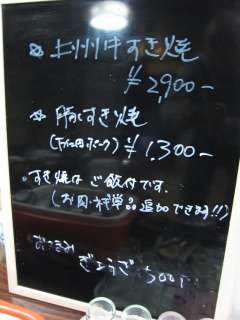 上州牛すき焼
¥2,900-
豚すき焼
(下仁田ポーク) ¥1,300-
すき焼はご飯付です.
(お肉・単品追加できます!!)
おつまみ
ぎょうざ 500